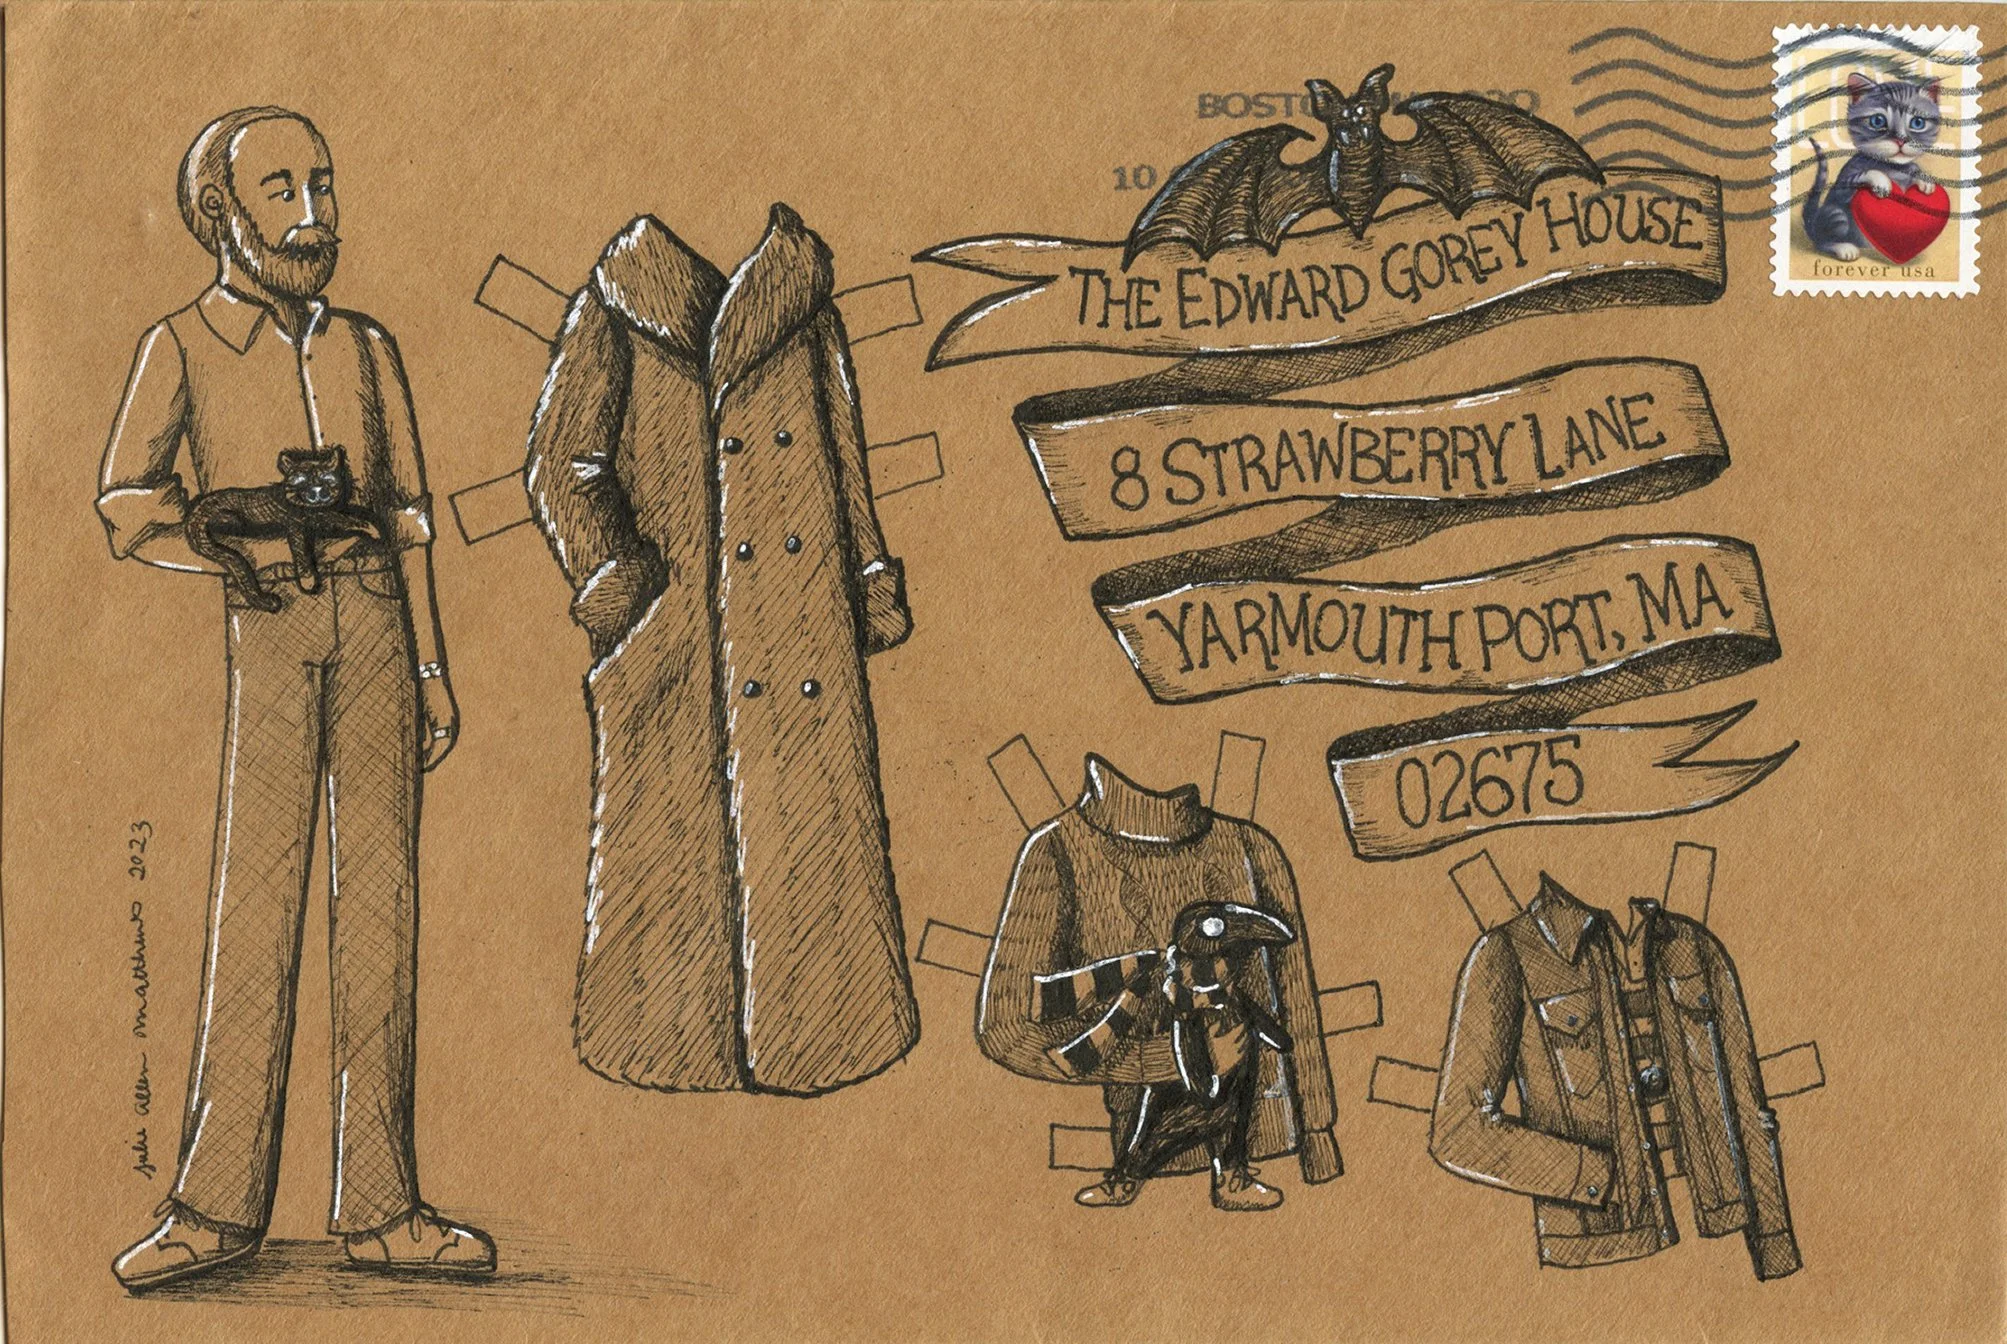 BOSTO
10
THE EDWARD GOREY HOUSE
8 STRAWBERRY LANE
YARMOUTH PORT, MA
02675
LOVE
forever usa
julie allen matthews 2023